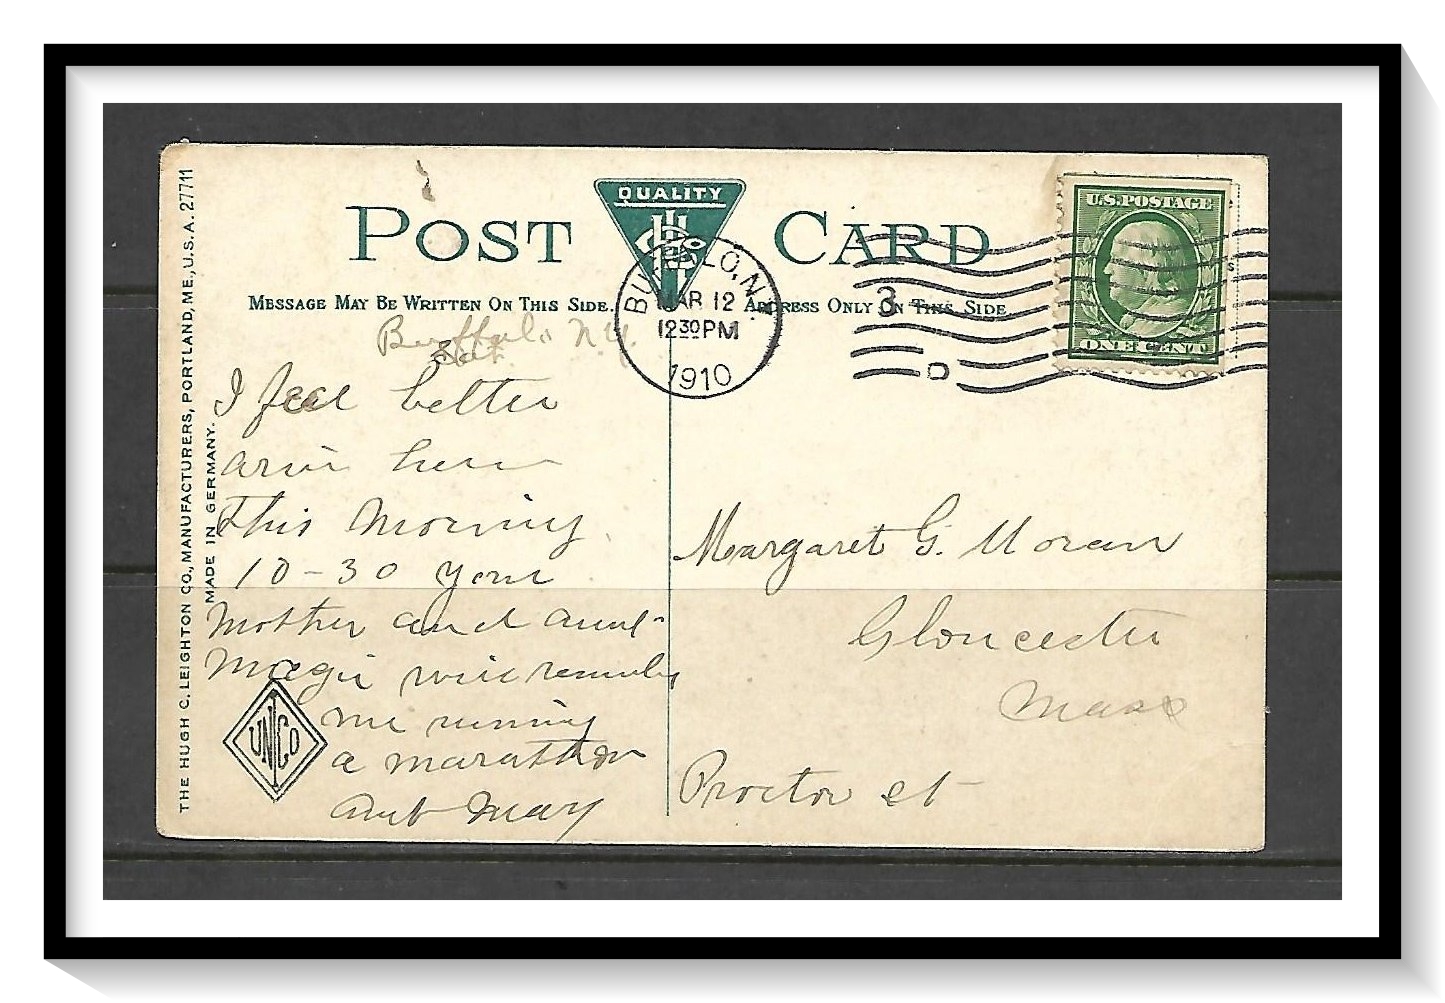 POST CARD
QUALITY
MESSAGE MAY BE WRITTEN ON THIS SIDE.
ADDRESS ONLY ON THIS SIDE
BUFFALO, N.Y.
MAR 12
1230 PM
1910
3
D
U.S. POSTAGE
ONE CENT
THE HUGH C. LEIGHTON CO., MANUFACTURERS, PORTLAND, ME., U.S.A. 27711
MADE IN GERMANY.
Buffalo N.Y.
Sat.
I feel better
ariv here
This Morning
10-30 your
mother and aunt
Magie will remember
me running
a marathon
Aunt May
UNICO
Margaret G. Moran
Gloucester
Mass
Proctor st